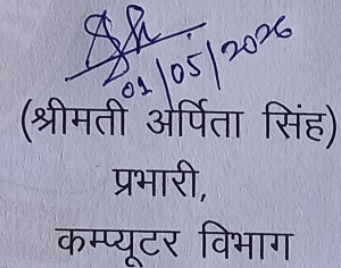 01/05/2026
(श्रीमती अर्पिता सिंह)
प्रभारी,
कम्प्यूटर विभाग